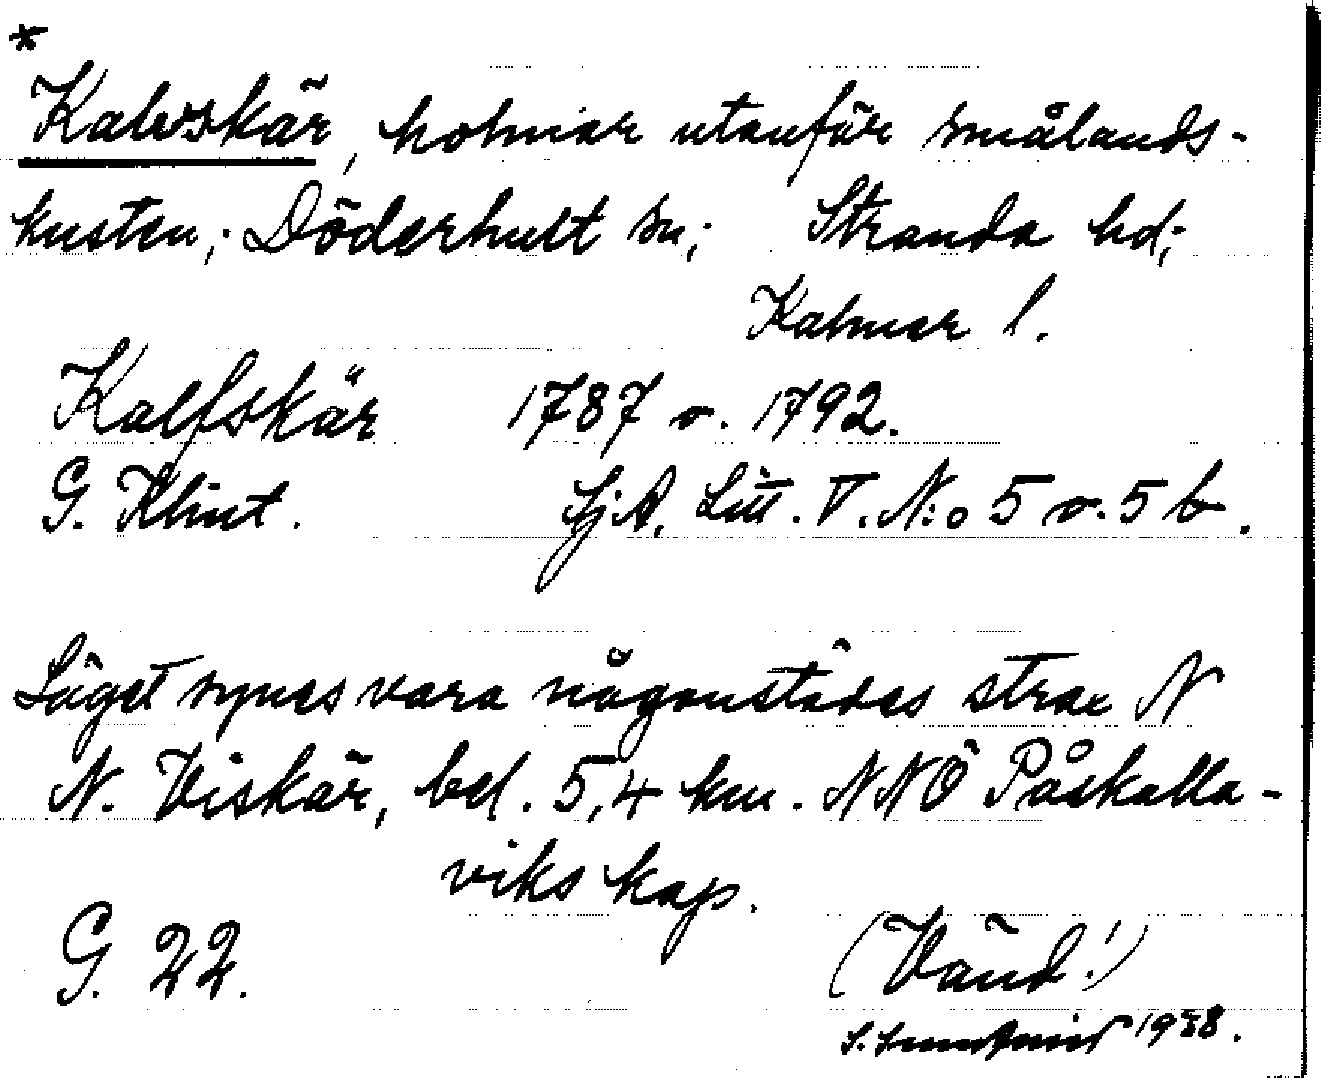 *
Kalvskär, holmar utanför smålands-
kusten; Döderhult sn; Stranda hd;
Kalmar l.
Kalfskär 1787 o. 1792.
G. Klint. SjA. Litt. V. N:o 5 o. 5 b.
Läget synes vara någonstädes strax N
N. Viskär, bel. 5,4 km. NNÖ Påskalla-
viks kap.
G. 22. (Vänd!)
S. 1938.